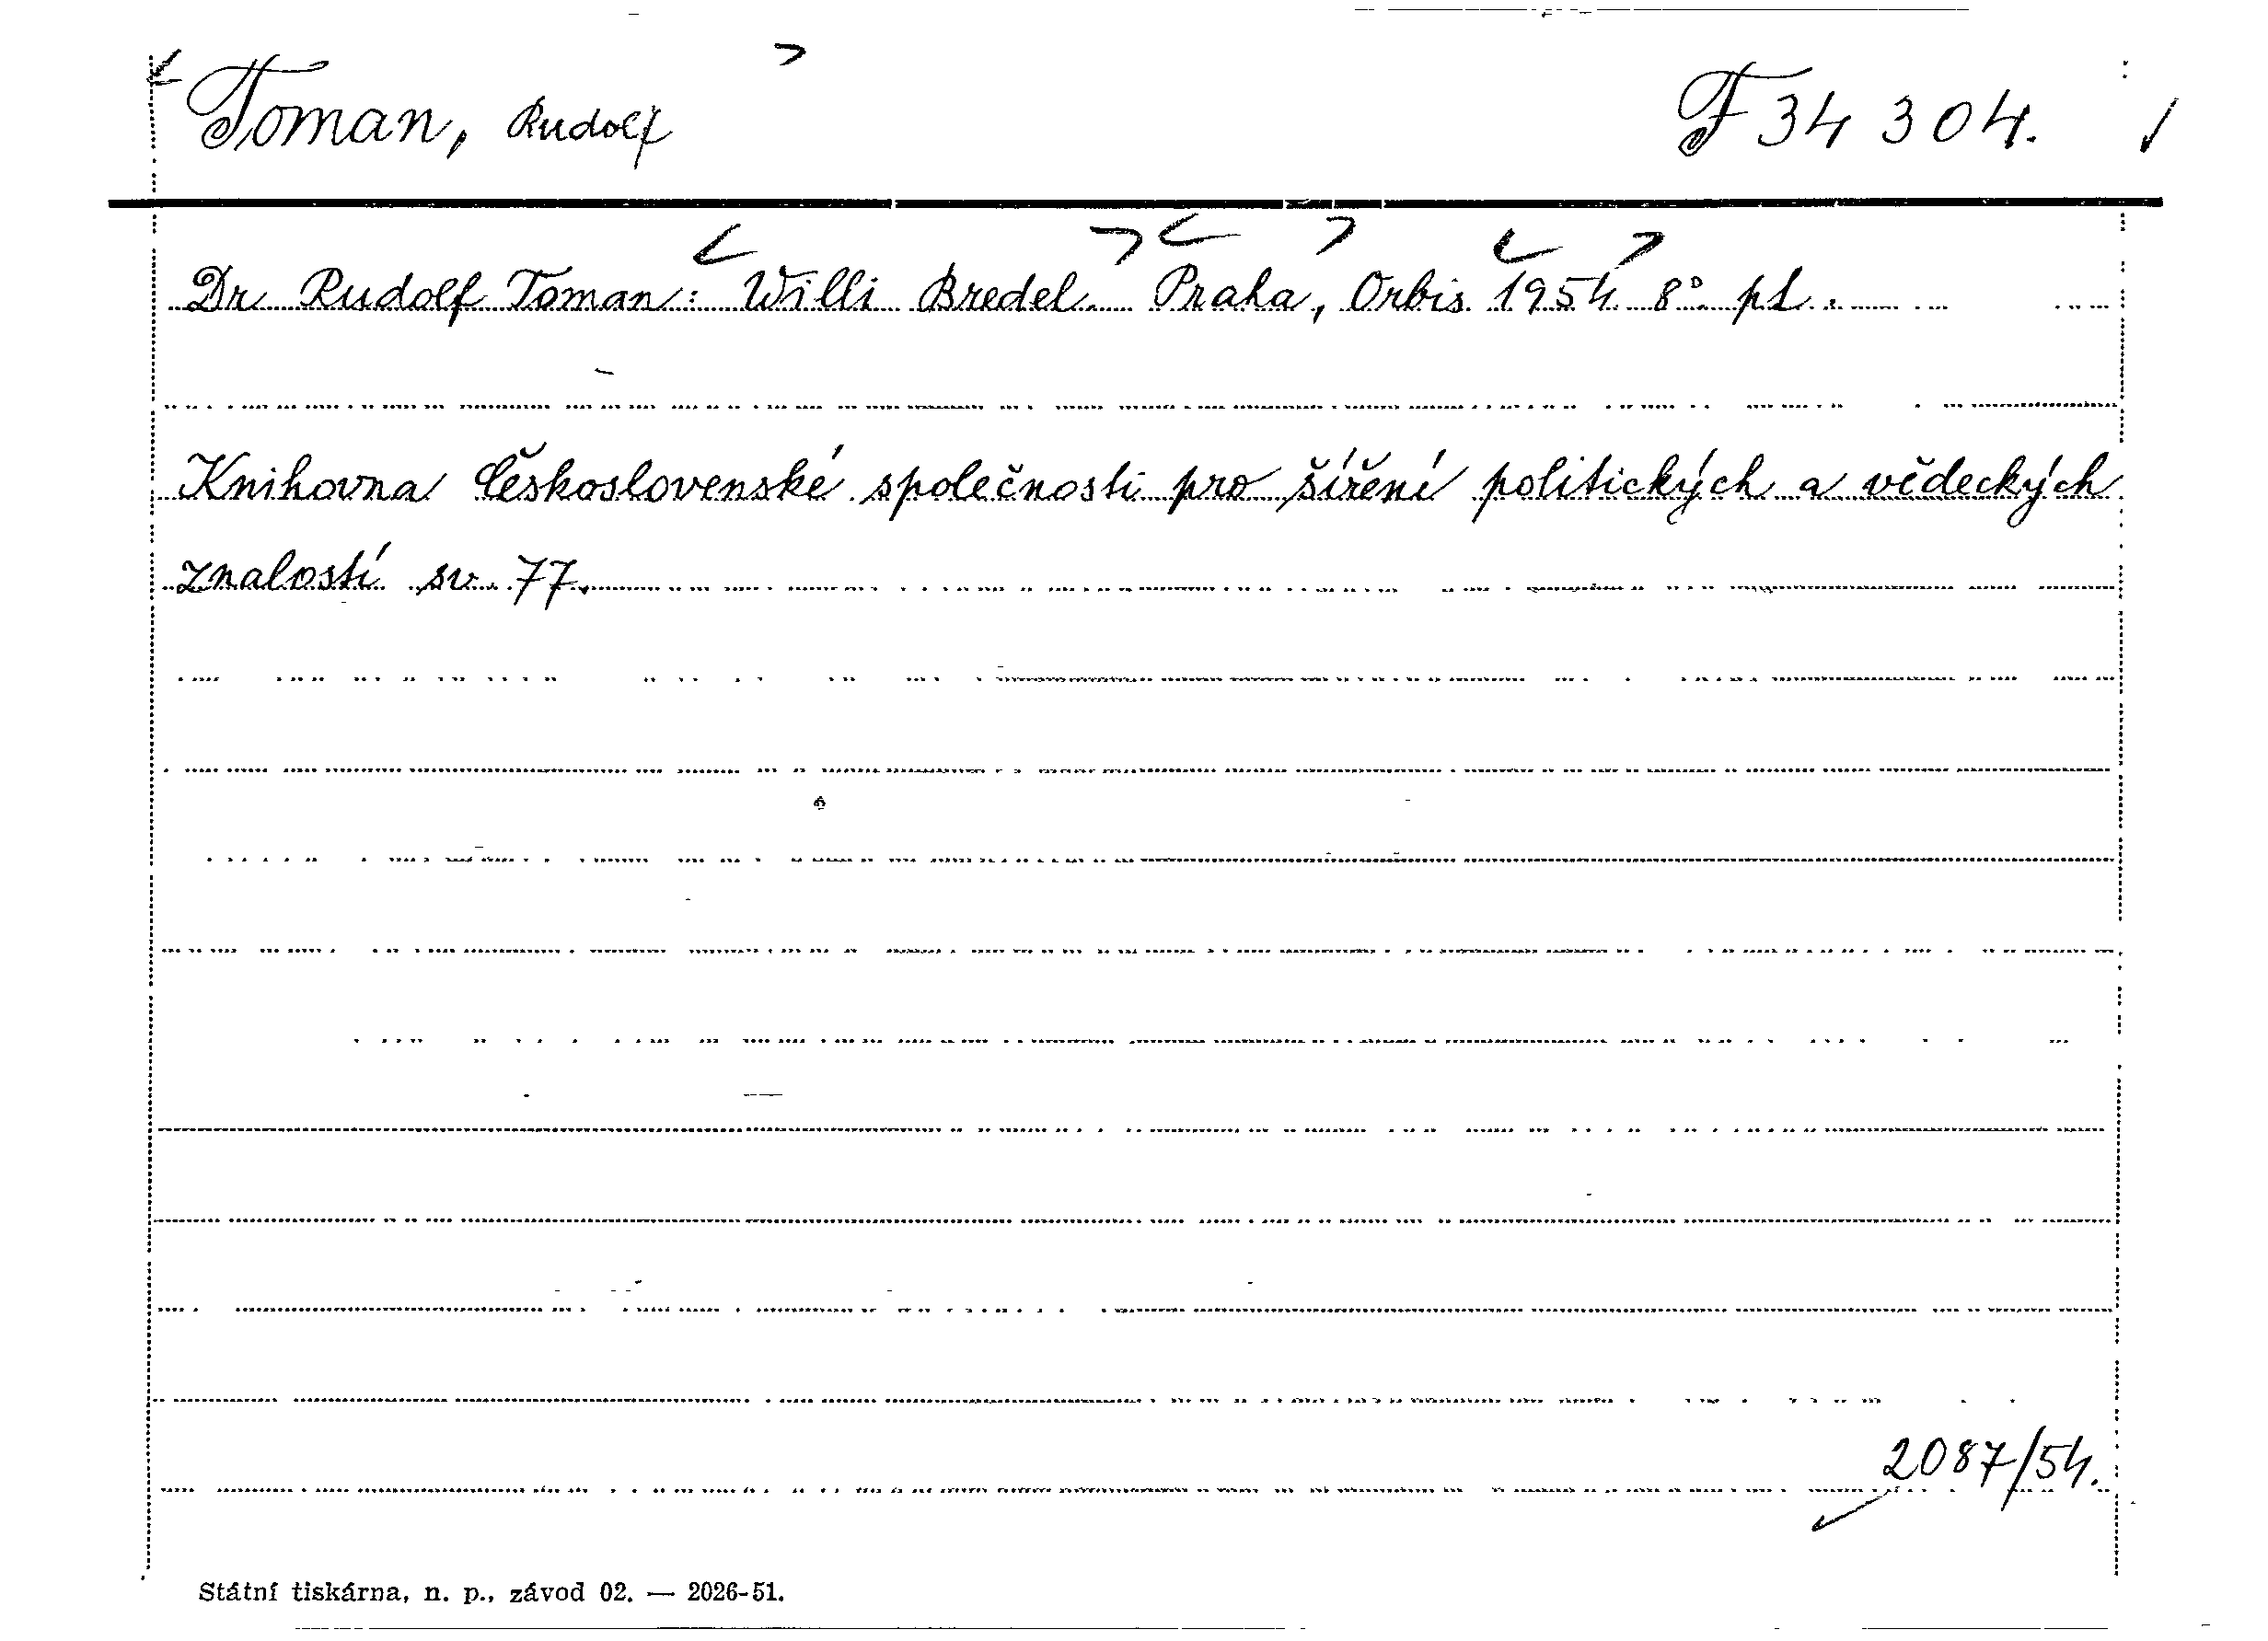 Toman, Rudolf F 34 304.
Dr Rudolf Toman: Willi Bredel. Praha, Orbis 1954 8° pl.
Knihovna Československé společnosti pro šíření politických a vědeckých
znalostí sv. 77.
2087/54.
Státní tiskárna, n. p., závod 02. — 2026-51.